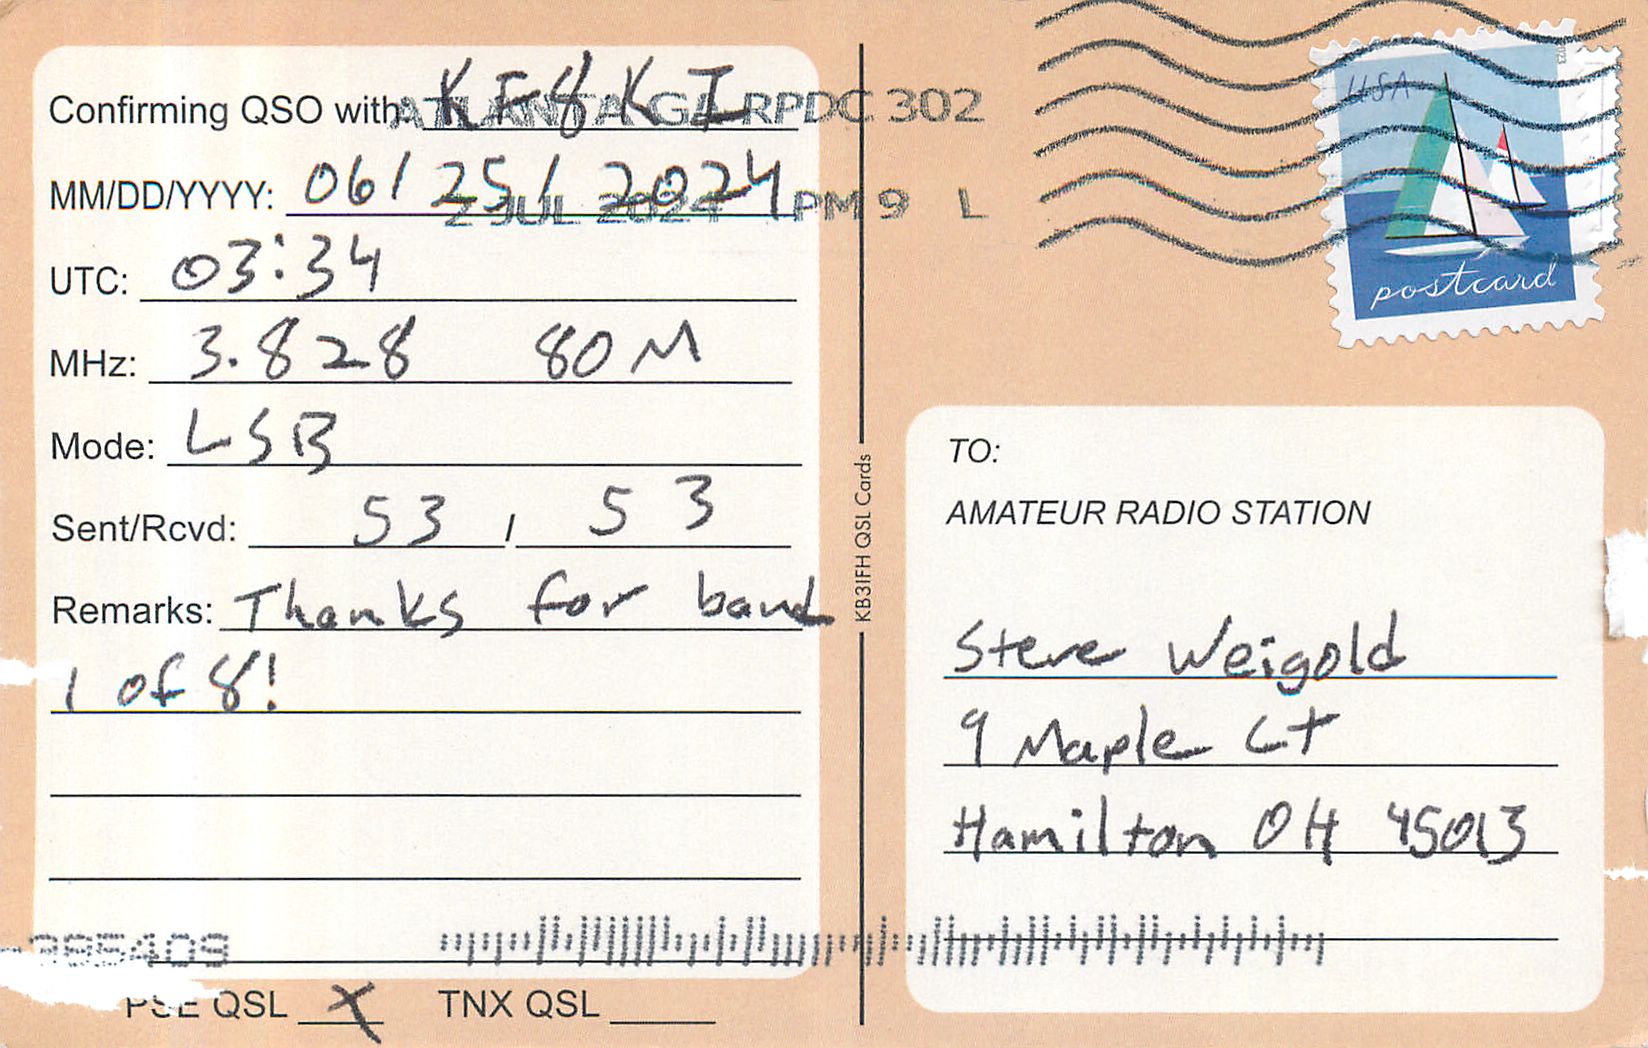 Confirming QSO with: KF8KI
ATLANTA GA RPDC 302
MM/DD/YYYY: 06/25/2024
2 JUL 2024 PM 9 L
UTC: 03:34
MHz: 3.828 80M
Mode: LSB
Sent/Rcvd: 53 / 53
Remarks: Thanks for band
1 of 8!
385409
PSE QSL X TNX QSL
KB3IFH QSL Cards
USA
postcard
TO:
AMATEUR RADIO STATION
Steve Weigold
9 Maple Ct
Hamilton OH 45013